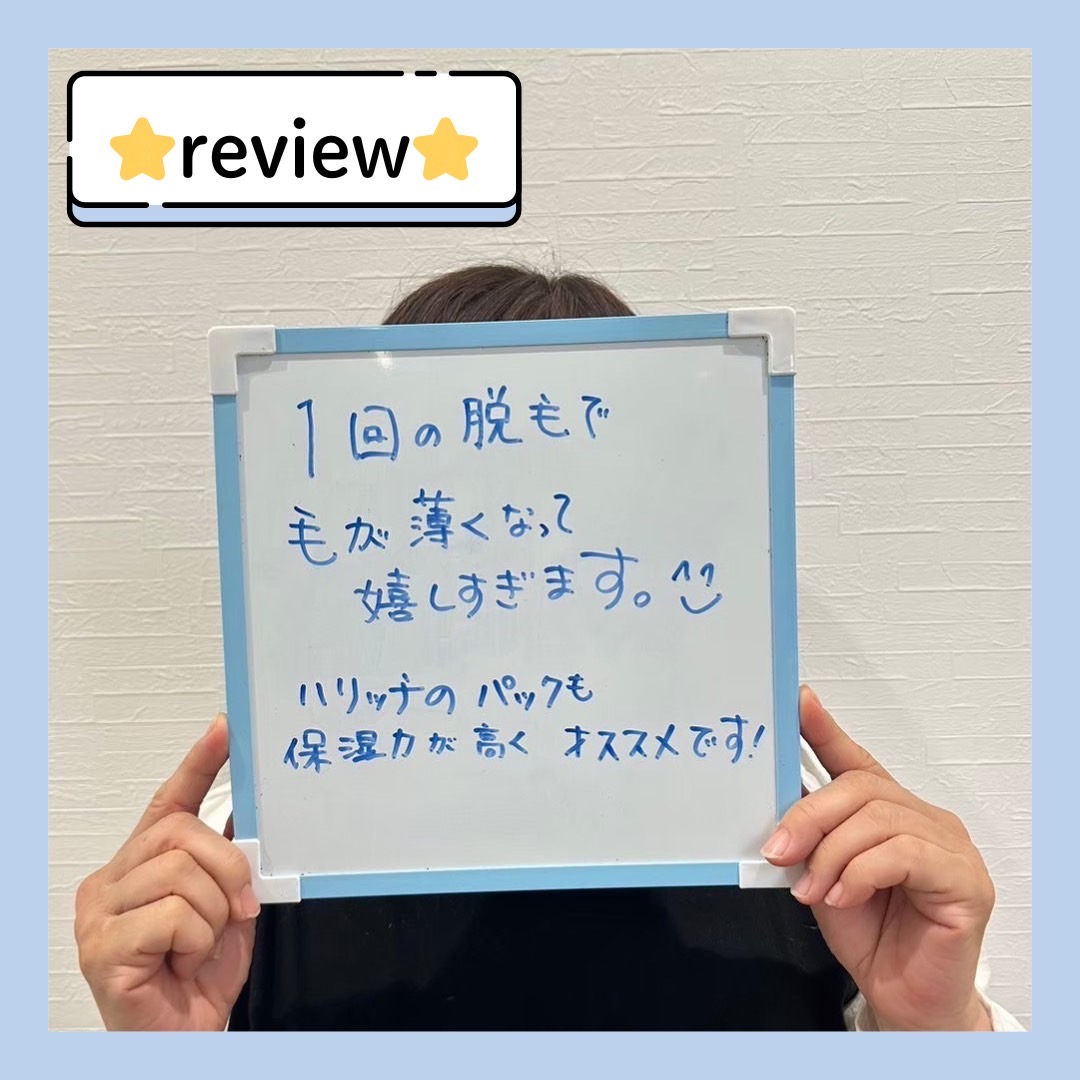 ⭐review⭐
1回の脱毛で
毛が薄くなって
嬉しすぎます。^^
ハリッチのパックも
保湿力が高く オススメです!